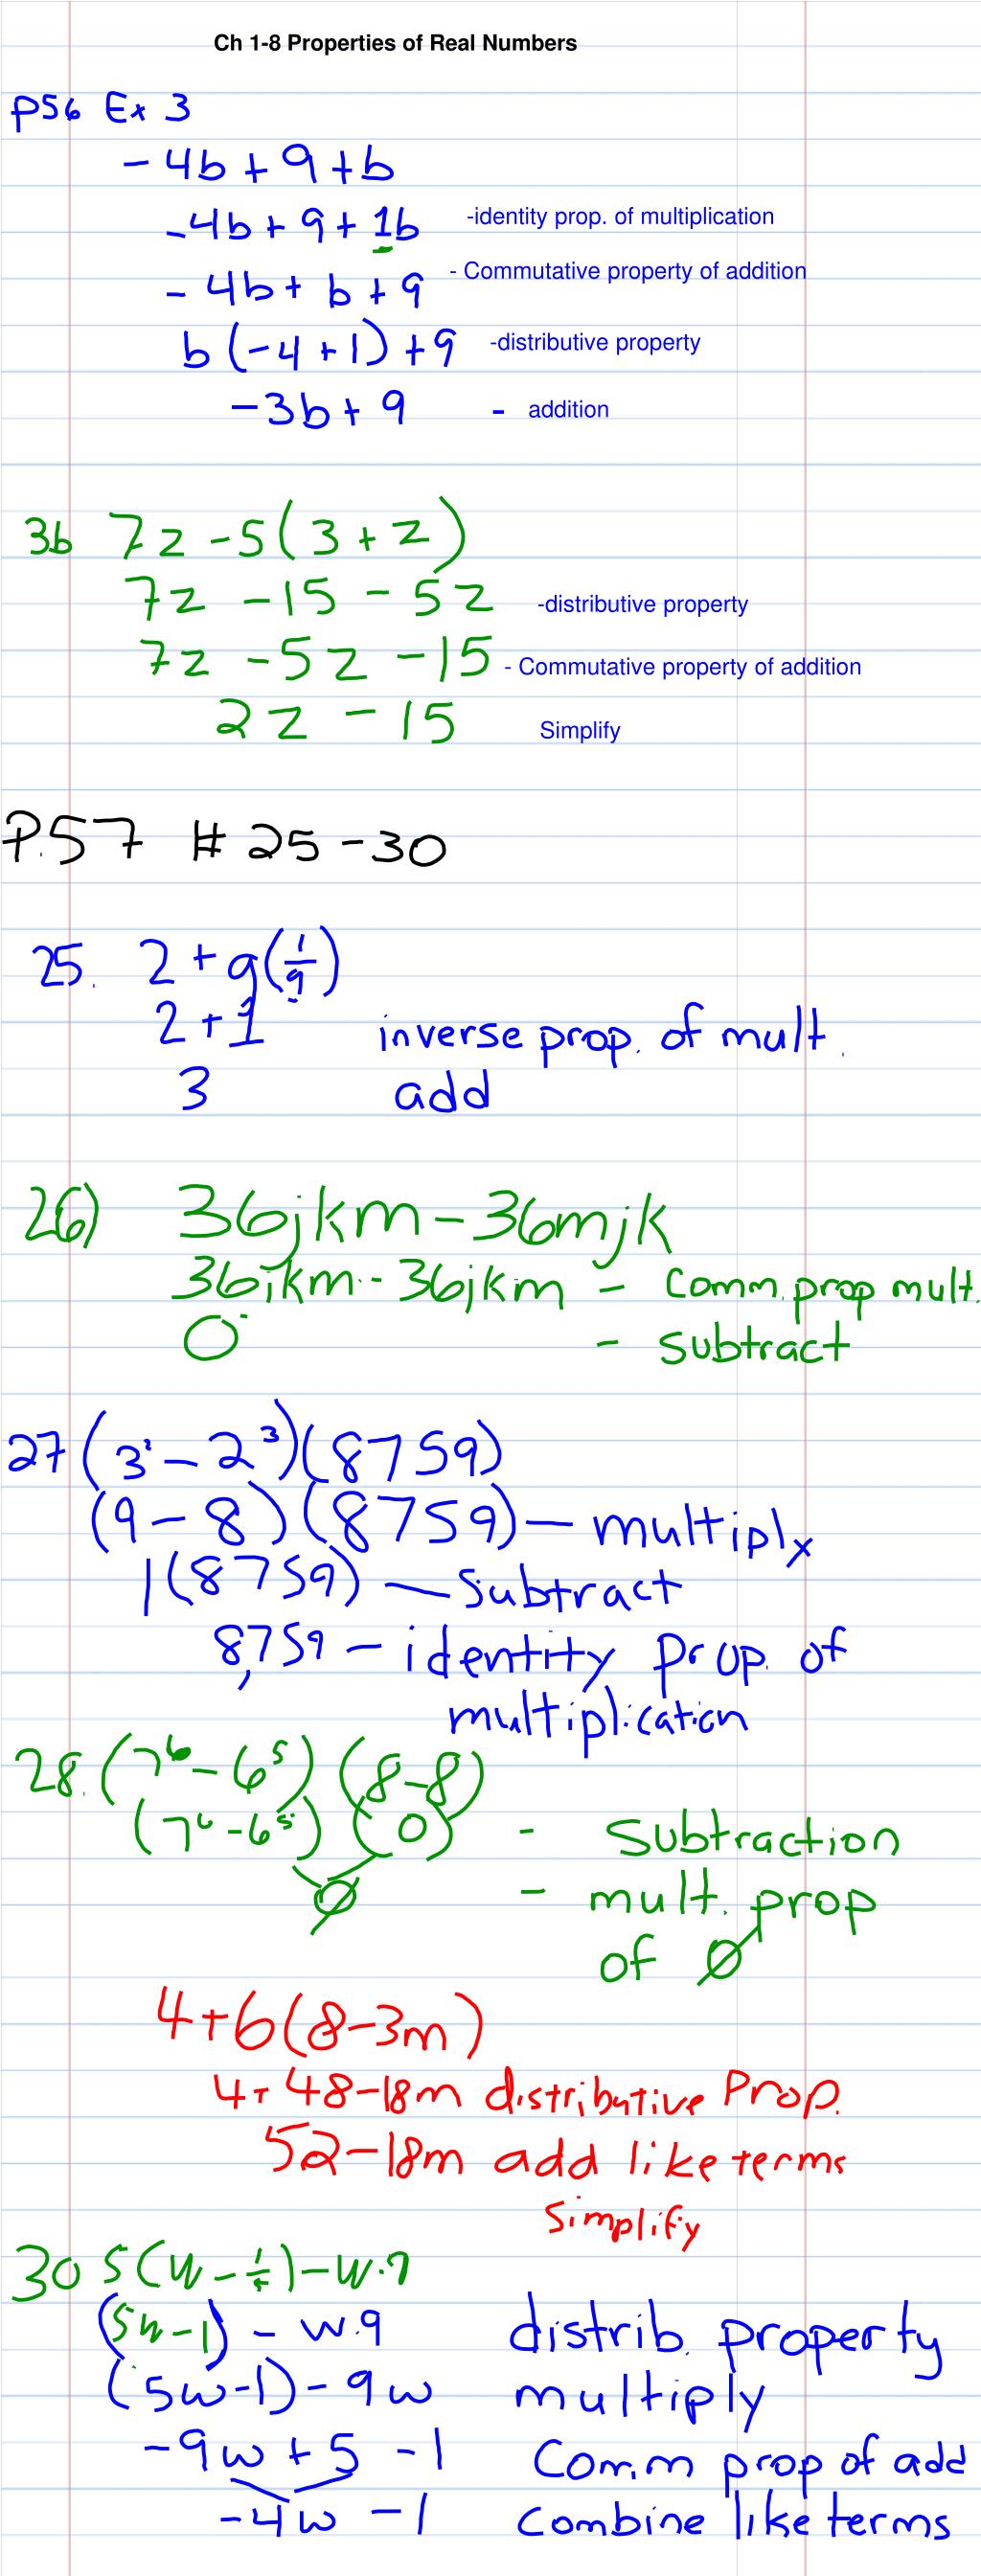 Ch 1-8 Properties of Real Numbers
p56 Ex 3
-4b + 9 + b
-4b + 9 + 1b -identity prop. of multiplication
-4b + b + 9 - Commutative property of addition
b(-4 + 1) + 9 -distributive property
-3b + 9 - addition
3b 7z - 5(3 + z)
7z - 15 - 5z -distributive property
7z - 5z - 15 - Commutative property of addition
2z - 15 Simplify
P.57 # 25 - 30
25. 2 + g(1/g)
2 + 1 inverse prop. of mult.
3 add
26) 36jkm - 36mjk
36jkm - 36jkm - Comm. prop mult.
0 - subtract
27 (3² - 2³)(8759)
(9 - 8)(8759) - multiply
1(8759) - Subtract
8,759 - identity prop. of
multiplication
28. (7⁶ - 6⁵)(8-8)
(7⁶ - 6⁵)(0) - Subtraction
0 - mult. prop
of 0
4 + 6(8 - 3m)
4 + 48 - 18m distributive Prop.
52 - 18m add like terms
Simplify
30 5(w - 1/5) - w·9
(5w - 1) - w·9 distrib. property
(5w - 1) - 9w multiply
-9w + 5 - 1 Comm prop of add
-4w - 1 Combine like terms